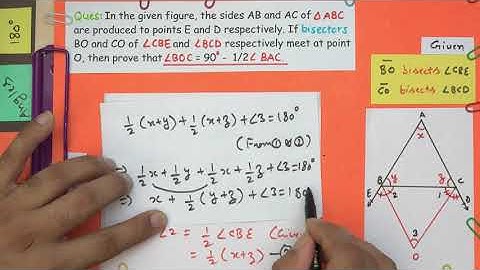 Ques: In the given figure, the sides AB and AC of △ABC
are produced to points E and D respectively. If bisectors
BO and CO of ∠CBE and ∠BCD respectively meet at point
O, then prove that ∠BOC = 90° - 1/2∠ BAC.
180°
Angles
Given
BO bisects ∠CBE
CO bisects ∠BCD
1/2 (x+y) + 1/2 (x+z) + ∠3 = 180°
(From ① & ②)
⇒ 1/2 x + 1/2 y + 1/2 x + 1/2 z + ∠3 = 180°
⇒ x + 1/2 (y+z) + ∠3 = 180
∠2 = 1/2 ∠CBE (Given
= 1/2 (x+z) — ②
A
x
B y z C
E 2 1 D
3
O